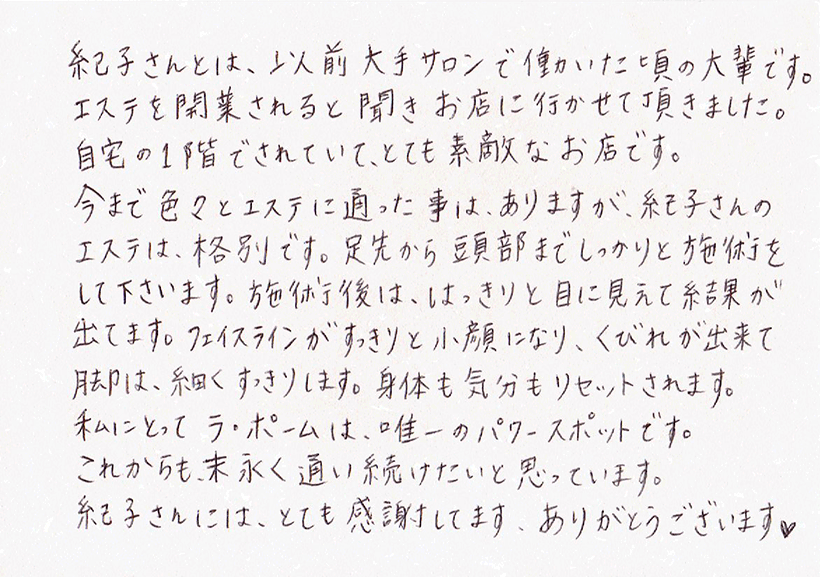 紀子さんとは、以前大手サロンで働いた頃の大輩です。
エステを開業されると聞きお店に行かせて頂きました。
自宅の1階でされていて、とても素敵なお店です。
今まで色々とエステに通った事は、ありますが、紀子さんの
エステは、格別です。足先から頭部までしっかりと施術を
して下さいます。施術後は、はっきりと目に見えて結果が
出てます。フェイスラインがすっきりと小顔になり、くびれが出来て
脚は、細くすっきりします。身体も気分もリセットされます。
私にとって ラ・ポームは、唯一のパワースポットです。
これからも、末永く通い続けたいと思っています。
紀子さんには、とても感謝してます、ありがとうございます♥